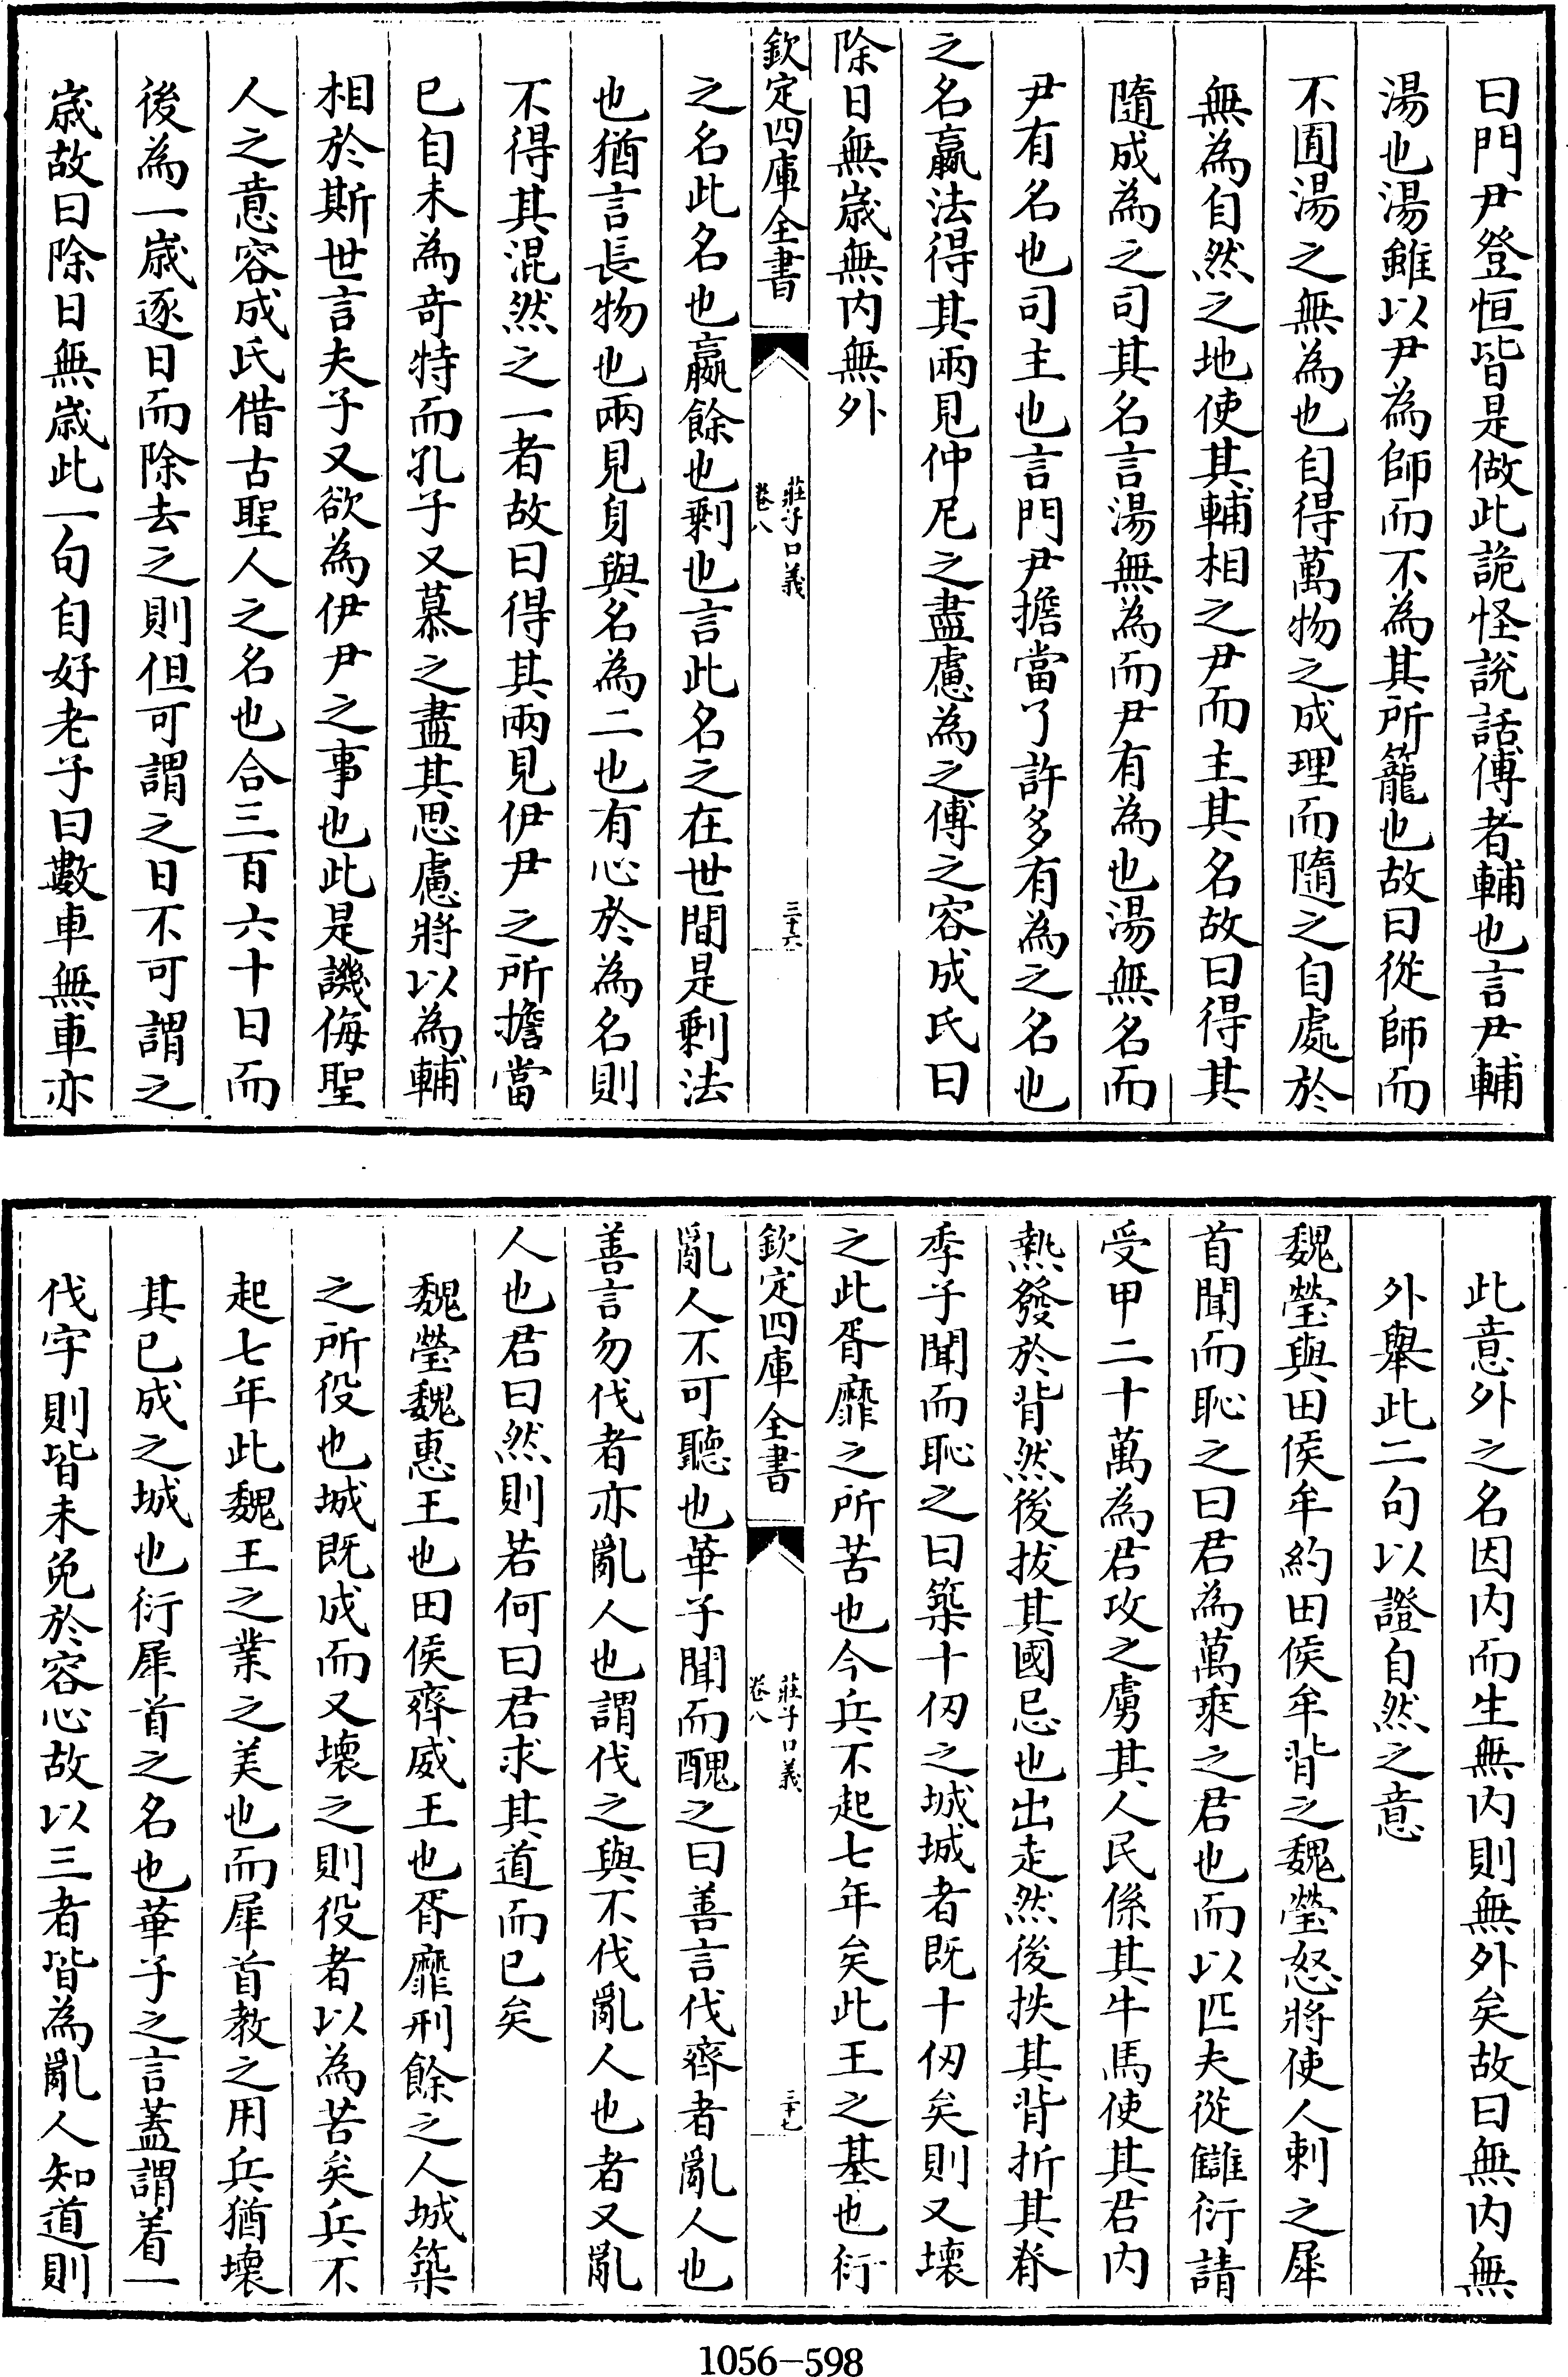 曰門尹登恒皆是做此詭怪說話傅者輔也言尹輔
湯也湯雖以尹為師而不為其所籠也故曰從師而
不囿湯之無為也自得萬物之成理而隨之自處於
無為自然之地使其輔相之尹而主其名故曰得其
隨成為之司其名言湯無為而尹有為也湯無名而
尹有名也司主也言門尹擔當了許多有為之名也
之名嬴法得其兩見仲尼之盡慮為之傅之容成氏曰
除日無歲無内無外
欽定四庫全書
莊子口義
卷八
三十六
之名此名也嬴餘也剩也言此名之在世間是剩法
也猶言長物也兩見身與名為二也有心於為名則
不得其混然之一者故曰得其兩見伊尹之所擔當
已自未為奇特而孔子又慕之盡其思慮將以為輔
相於斯世言夫子又欲為伊尹之事也此是譏侮聖
人之意容成氏借古聖人之名也合三百六十日而
後為一歲逐日而除去之則但可謂之日不可謂之
歲故曰除日無歲此一句自好老子曰數車無車亦
此意外之名因内而生無内則無外矣故曰無内無
外舉此二句以證自然之意
魏瑩與田侯牟約田侯牟背之魏瑩怒將使人刺之犀
首聞而恥之曰君為萬乘之君也而以匹夫從讎衍請
受甲二十萬為君攻之虜其人民係其牛馬使其君内
熱發於背然後拔其國忌也出走然後抶其背折其脊
季子聞而恥之曰築十仞之城城者既十仞矣則又壞
之此胥靡之所苦也今兵不起七年矣此王之基也衍
欽定四庫全書
莊子口義
卷八
三十七
亂人不可聽也華子聞而醜之曰善言伐齊者亂人也
善言勿伐者亦亂人也謂伐之與不伐亂人也者又亂
人也君曰然則若何曰君求其道而已矣
魏瑩魏惠王也田侯齊威王也胥靡刑餘之人城築
之所役也城既成而又壞之則役者以為苦矣兵不
起七年此魏王之業之美也而犀首教之用兵猶壞
其已成之城也衍犀首之名也華子之言蓋謂着一
伐字則皆未免於容心故以三者皆為亂人知道則
1056-598